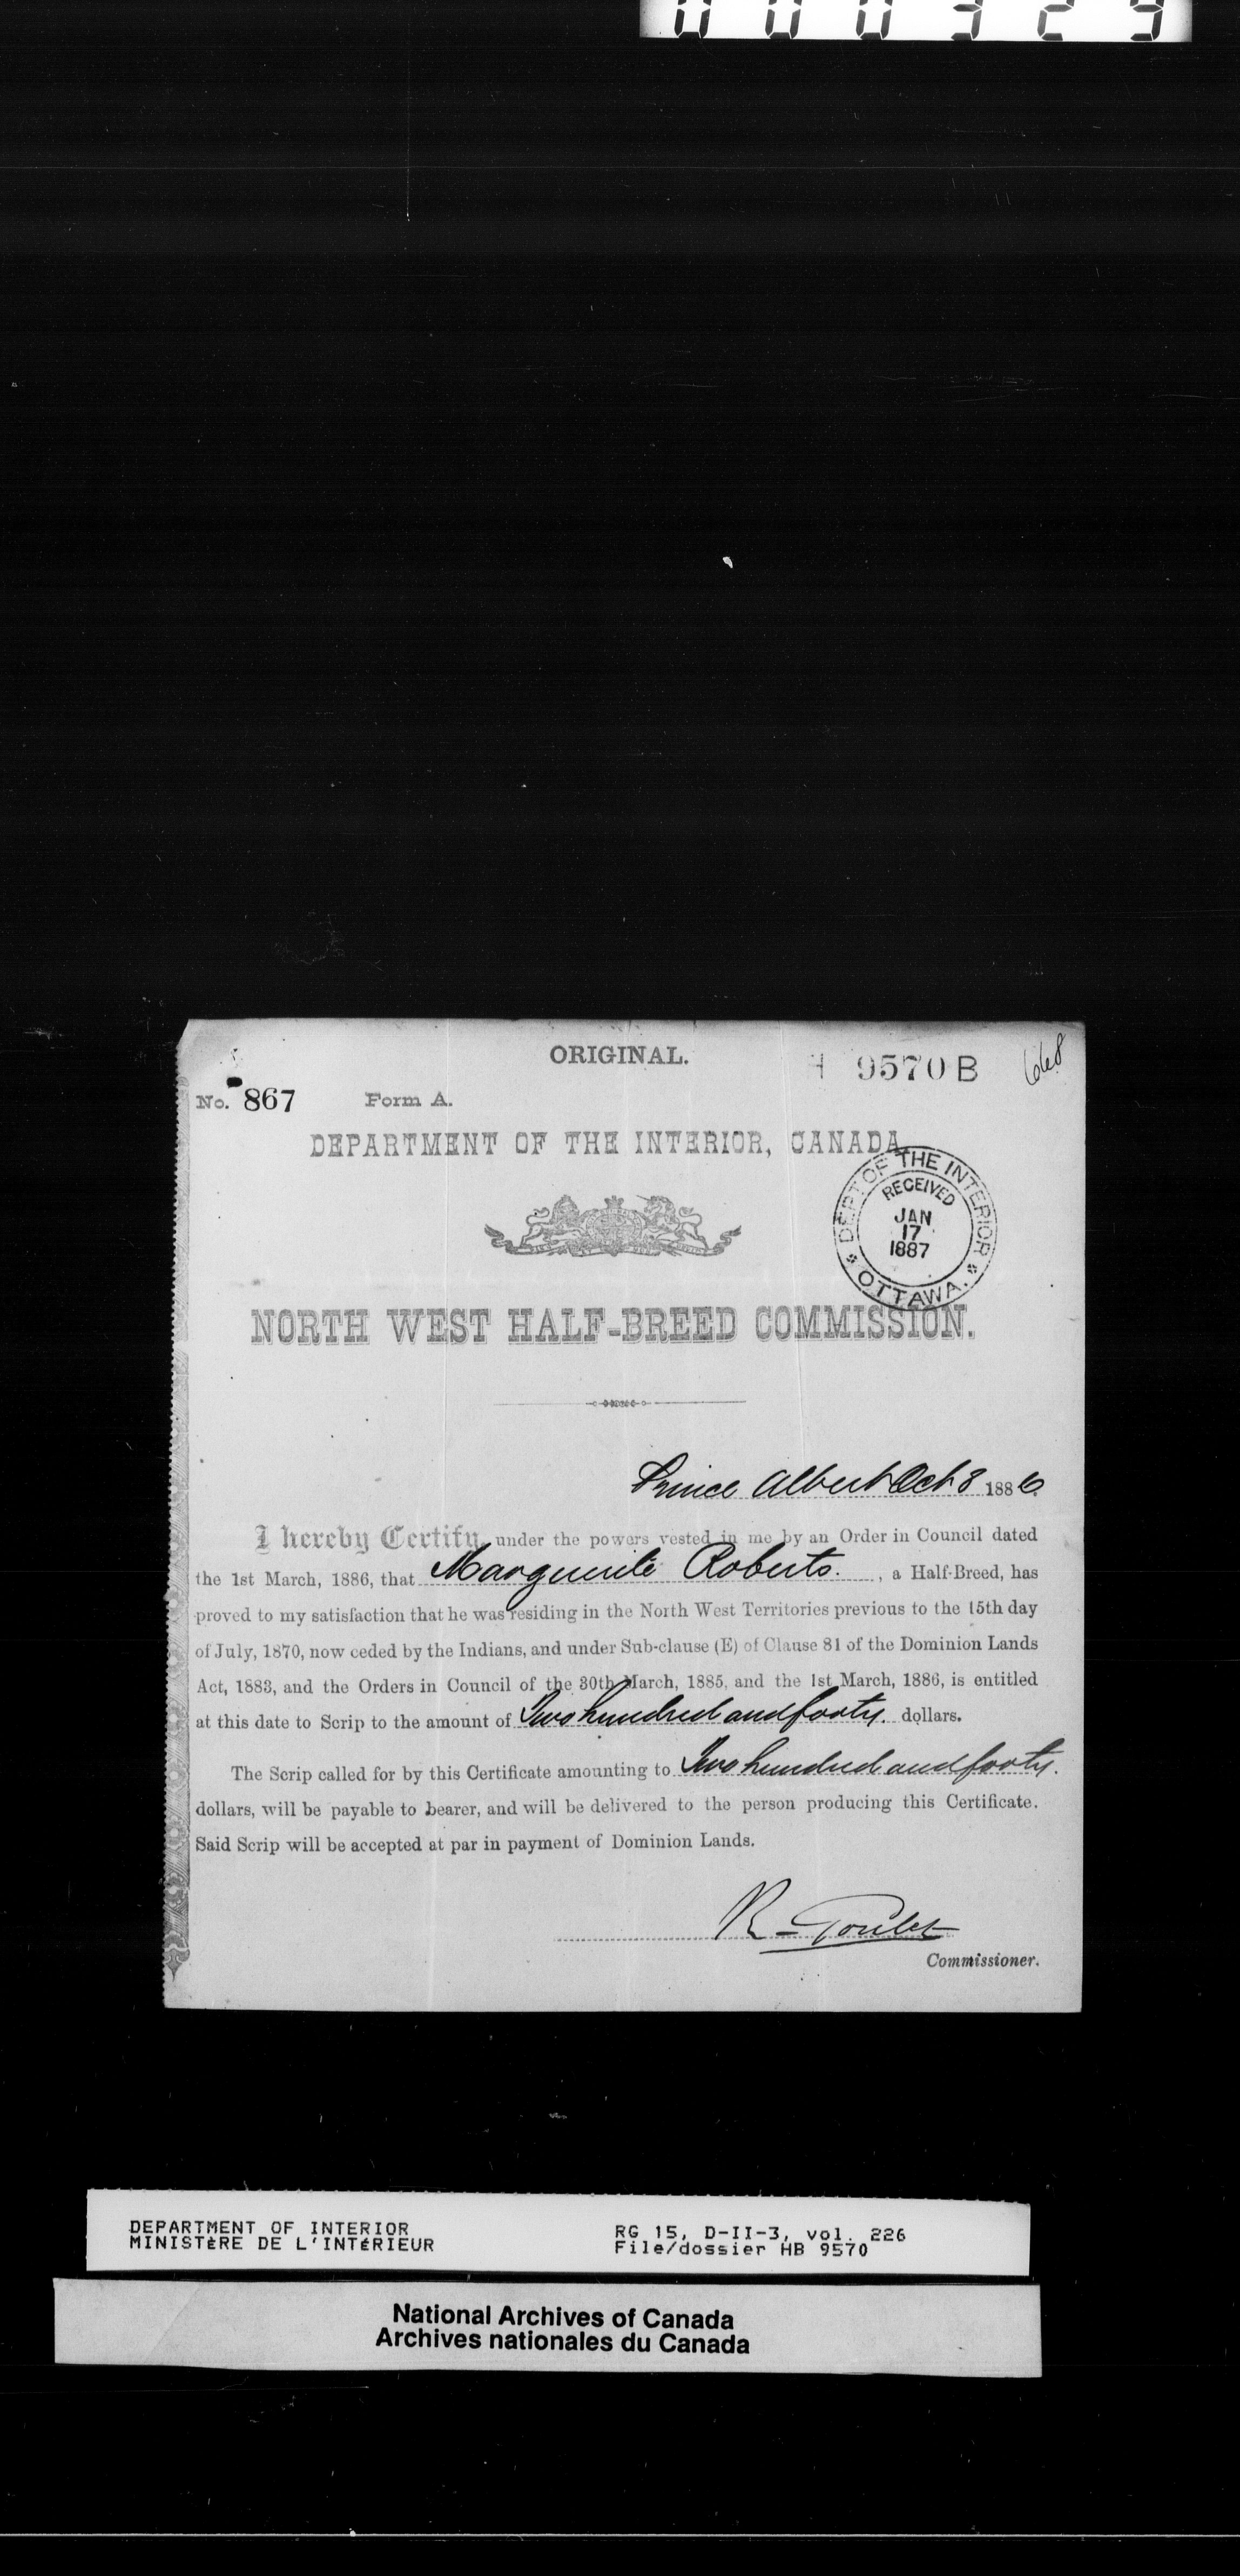 000329
ORIGINAL.
H 9570 B
668
No. 867
Form A.
DEPARTMENT OF THE INTERIOR, CANADA
DEPT. OF THE INTERIOR
RECEIVED
JAN
17
1887
OTTAWA.
NORTH WEST HALF-BREED COMMISSION.
Prince Albert Oct 8 1886
I hereby Certify, under the powers vested in me by an Order in Council dated
the 1st March, 1886, that Marguerite Roberts. , a Half-Breed, has
proved to my satisfaction that he was residing in the North West Territories previous to the 15th day
of July, 1870, now ceded by the Indians, and under Sub-clause (E) of Clause 81 of the Dominion Lands
Act, 1883, and the Orders in Council of the 30th March, 1885, and the 1st March, 1886, is entitled
at this date to Scrip to the amount of Two hundred and forty. dollars.
The Scrip called for by this Certificate amounting to Two hundred and forty.
dollars, will be payable to bearer, and will be delivered to the person producing this Certificate.
Said Scrip will be accepted at par in payment of Dominion Lands.
R. Goulet
Commissioner.
DEPARTMENT OF INTERIOR
MINISTÈRE DE L'INTÉRIEUR
RG 15, D-II-3, vol. 226
File/dossier HB 9570
National Archives of Canada
Archives nationales du Canada